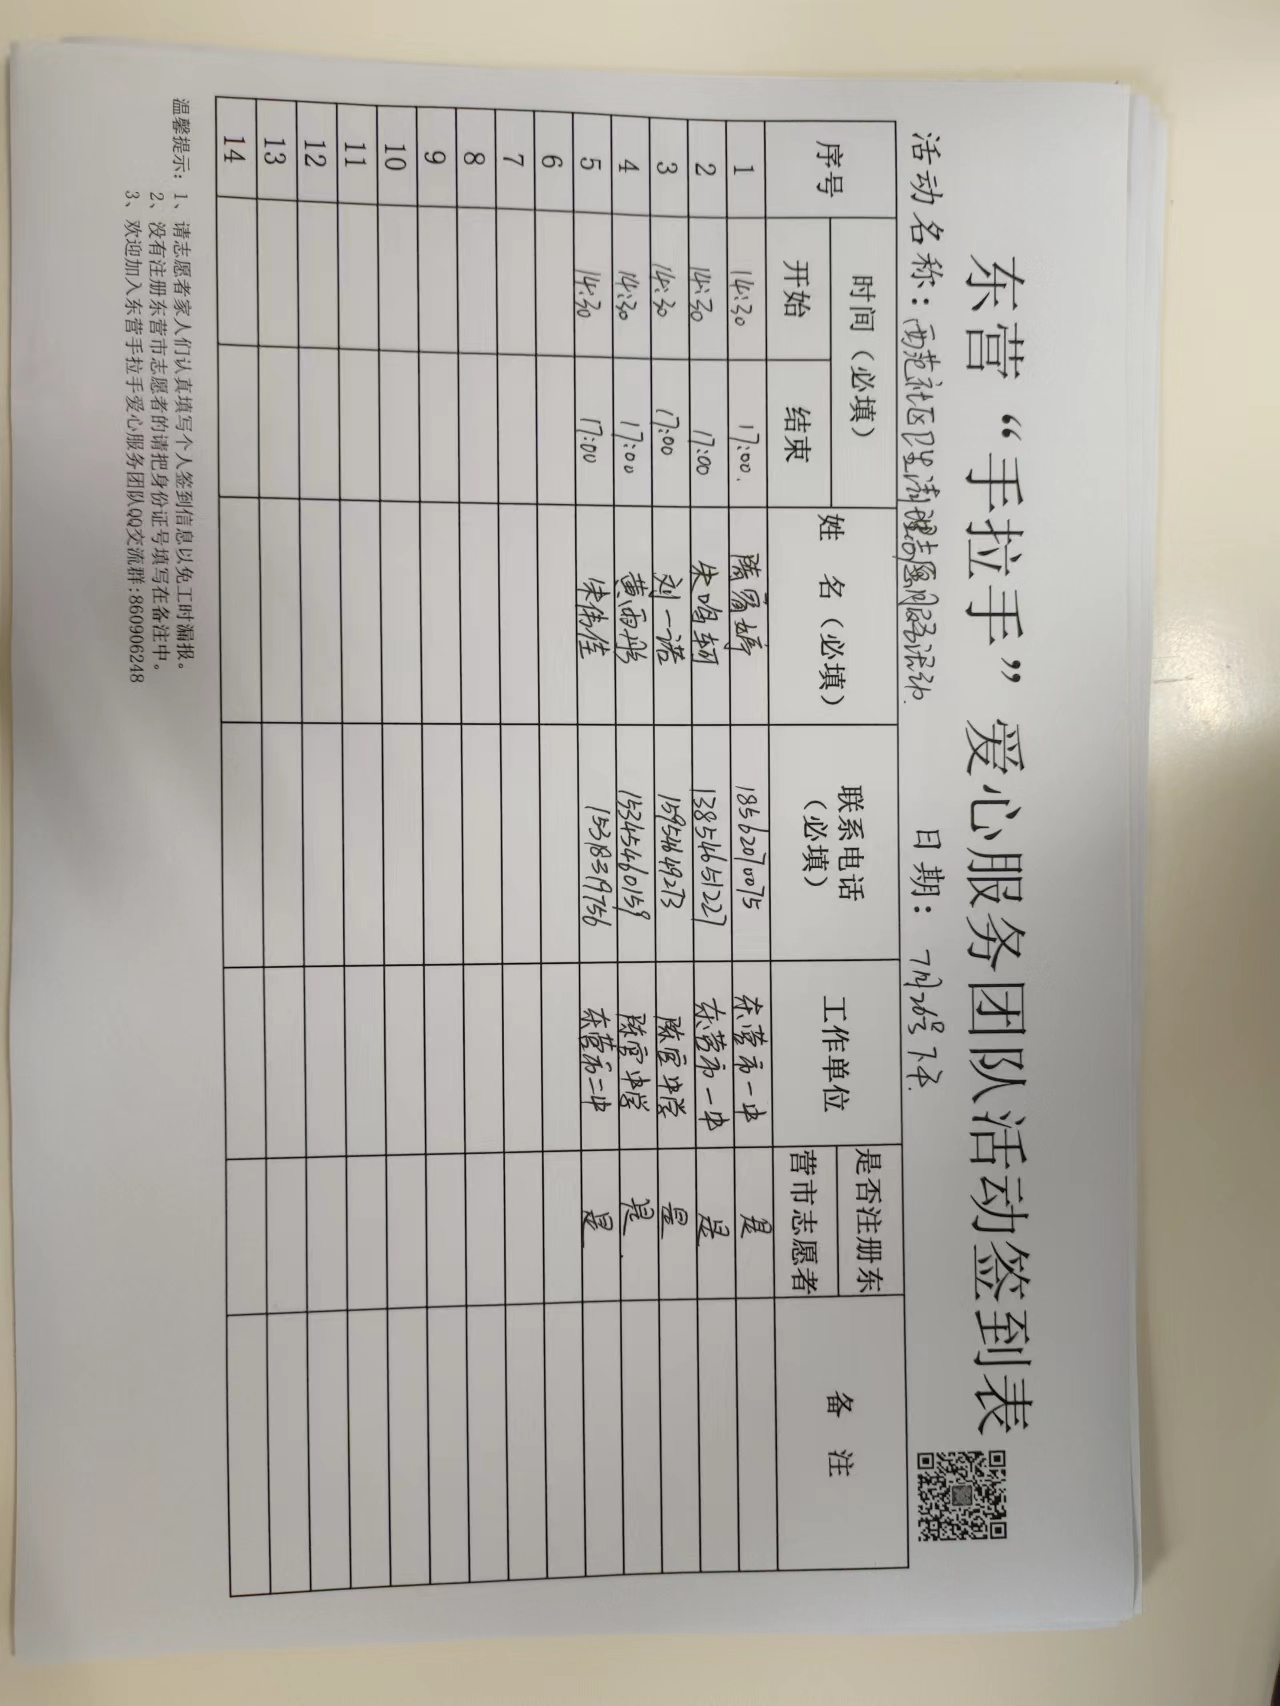 东营“手拉手”爱心服务团队活动签到表
活动名称：西范社区卫生清理志愿服务活动. 日期：7月26号下午.
序号 时间（必填） 姓 名（必填） 联系电话（必填） 工作单位 是否注册东营市志愿者 备 注
开始 结束
1 14:30 17:00. 隋 婷 18562070075 东营市一中 是
2 14:30 17:00 朱鸣轲 13854651227 东营市一中 是
3 14:30 17:00 刘一诺 15954649273 陈官中学 是
4 14:30 17:00 黄雨彤 15345460159 陈官中学 是.
5 14:30 17:00 宋伟佳 15318319756 东营市二中 是
6
7
8
9
10
11
12
13
14
温馨提示：1、请志愿者家人们认真填写个人签到信息以免工时漏报。
2、没有注册东营市志愿者的请把身份证号填写在备注中。
3、欢迎加入东营手拉手爱心服务团队QQ交流群:860906248